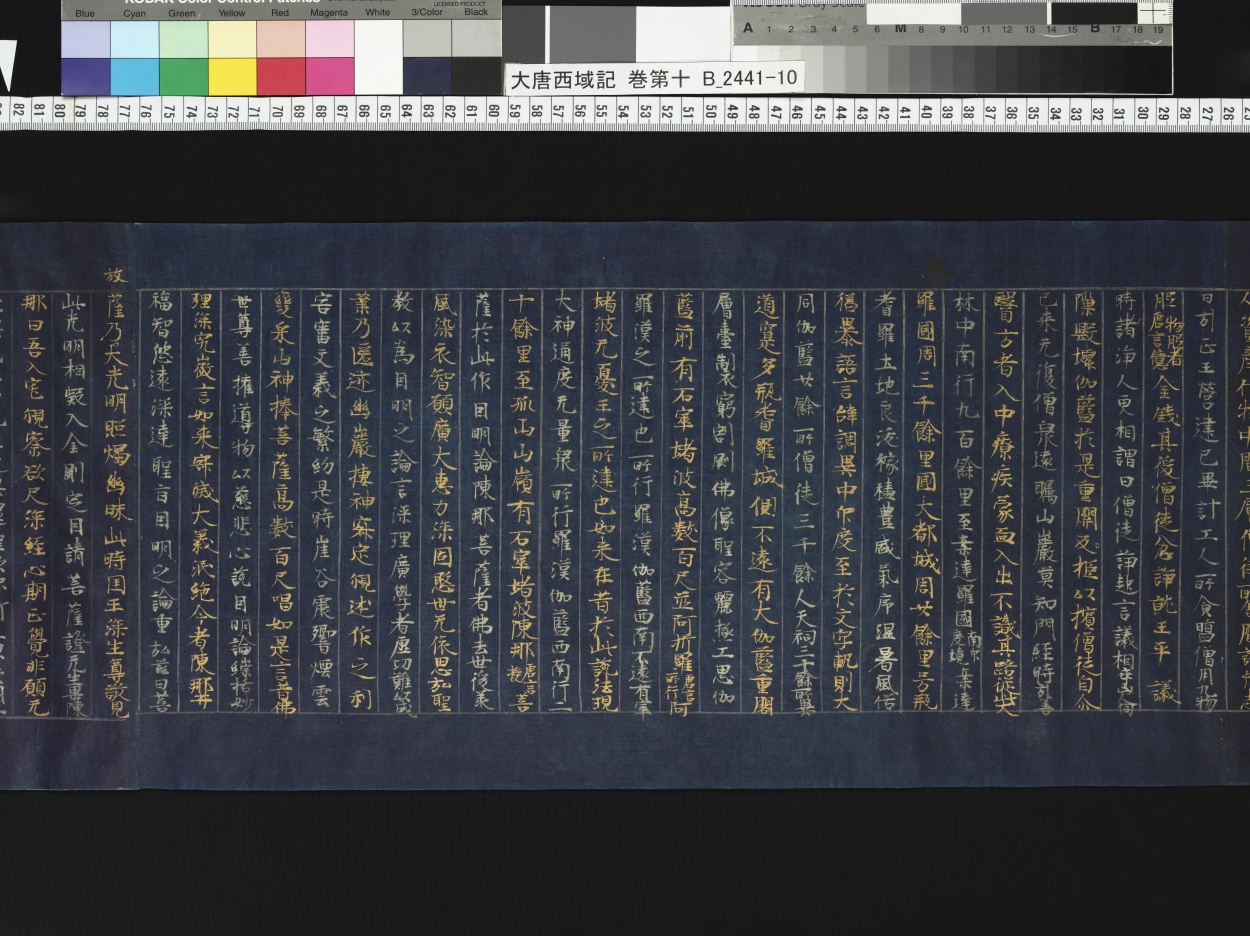 KODAK Color Control Patches
LICENSED PRODUCT
Blue Cyan Green Yellow Red Magenta White 3/Color Black
A 1 2 3 4 5 6 M 8 9 10 11 12 13 14 15 B 17 18 19
大唐西域記 巻第十 B_2441-10
82 81 80 79 78 77 76 75 74 73 72 71 70 69 68 67 66 65 64 63 62 61 60 59 58 57 56 55 54 53 52 51 50 49 48 47 46 45 44 43 42 41 40 39 38 37 36 35 34 33 32 31 30 29 28 27 26
曰引正王營建已畢計工人所食鹽僧月九物
金錢其後僧徒忿諍就王平議
時諸淨人更相謂曰僧徒諍起言議相
隙毀壞伽藍於是重關反拒以擯僧徒自尒
已來无復僧衆遠矚山巖莫知門徑時引善
醫方者入中療疾蒙面入出不識其路從此大
林中南行九百餘里至案達羅國南印度境案達
羅國周三千餘里國大都城周廿餘里号瓶
耆羅土地良沃稼穡豐盛氣序溫暑風俗
猛暴語言辭調異中印度至於文字軌則大
同伽藍廿餘所僧徒三千餘人天祠三十餘所異
道寔多瓶耆羅城側不遠有大伽藍重閣
層臺製窮剞劂佛像聖容麗極工思伽
藍前有石窣堵波高數百尺並阿折羅唐言所行阿
羅漢之所建也所行羅漢伽藍西南不遠有窣
堵波无憂王之所建也如來在昔於此說法現
大神通度无量衆所行羅漢伽藍西南行二
十餘里至孤山山嶺有石窣堵波陳那唐言授菩
薩於此作因明論陳那菩薩者佛去世後承
風染衣智願廣大惠力深固愍世无依思弘聖
教以爲因明之論言深理廣學者虛功難以
業乃匿迹幽巖棲神寂定觀述作之利
害審文義之繁約是時崖谷震響煙雲
變采山神捧菩薩高數百尺唱如是言昔佛
世尊善權導物以慈悲心說因明論綜括妙
理深究微言如來寂滅大義泯絕今者陳那菩
福智悠遠深達聖旨因明之論重弘茲日菩
放
薩乃大光明照燭幽昧此時国王深生尊敬見
此光明相疑入金剛定因請菩薩證无生果陳
那曰吾入定觀察欲尺深經心期正覺非願无